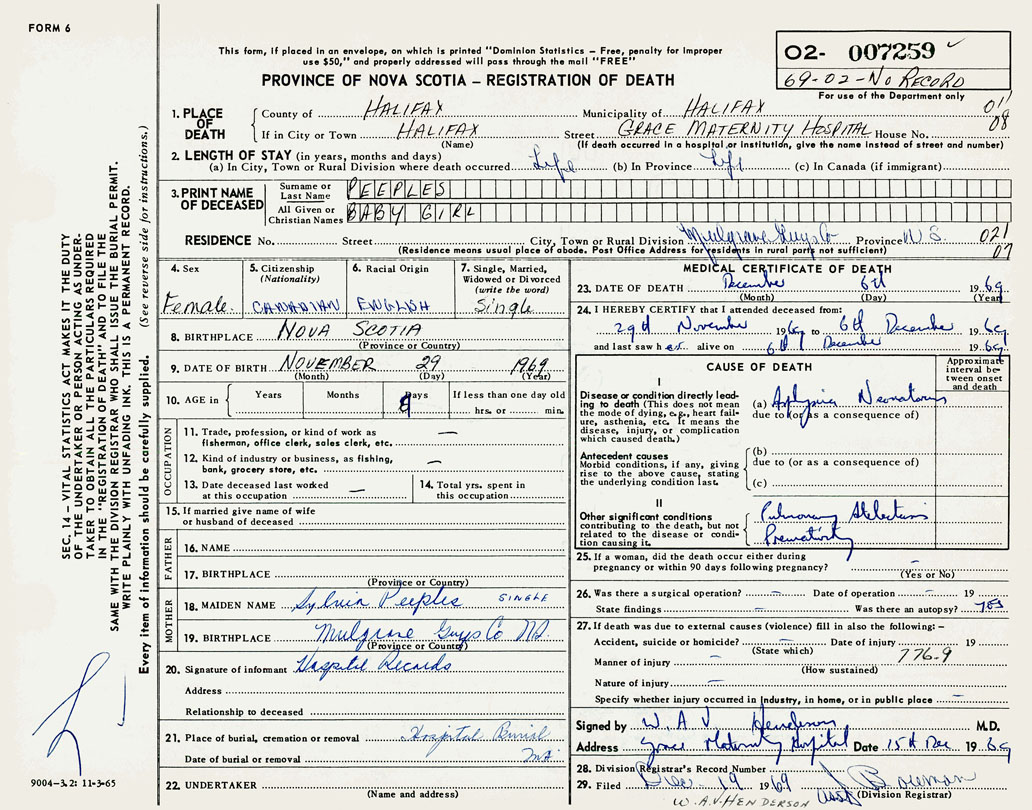 FORM 6
This form, if placed in an envelope, on which is printed "Dominion Statistics – Free, penalty for improper
use $50," and properly addressed will pass through the mail "FREE"
PROVINCE OF NOVA SCOTIA – REGISTRATION OF DEATH
O2- 007259
69-02-No RECORD
For use of the Department only
011
08
1. PLACE OF DEATH
County of HALIFAX Municipality of HALIFAX
If in City or Town HALIFAX Street GRACE MATERNITY HOSPITAL House No.
(Name) (If death occurred in a hospital or institution, give the name instead of street and number)
2. LENGTH OF STAY (in years, months and days)
(a) In City, Town or Rural Division where death occurred Life (b) In Province Life (c) In Canada (if immigrant)
3. PRINT NAME OF DECEASED
Surname or Last Name PEEPLES
All Given or Christian Names BABY GIRL
RESIDENCE No. Street City, Town or Rural Division Mulgrave Guys Co Province N.S. 021
(Residence means usual place of abode. Post Office Address for residents in rural parts not sufficient) 07
4. Sex Female
5. Citizenship (Nationality) CANADIAN
6. Racial Origin ENGLISH
7. Single, Married, Widowed or Divorced (write the word) Single
8. BIRTHPLACE NOVA SCOTIA
(Province or Country)
9. DATE OF BIRTH NOVEMBER 29 1969
(Month) (Day) (Year)
10. AGE in Years Months Days If less than one day old
hrs. or min.
OCCUPATION
11. Trade, profession, or kind of work as —
fisherman, office clerk, sales clerk, etc.
12. Kind of industry or business, as fishing, —
bank, grocery store, etc.
13. Date deceased last worked
at this occupation —
14. Total yrs. spent in
this occupation
15. If married give name of wife
or husband of deceased
FATHER
16. NAME
17. BIRTHPLACE
(Province or Country)
MOTHER
18. MAIDEN NAME Sylvia Peeples SINGLE
19. BIRTHPLACE Mulgrave Guys Co N.S.
(Province or Country)
20. Signature of informant Hospital Records
Address
Relationship to deceased
21. Place of burial, cremation or removal Hospital Burial
Date of burial or removal
22. UNDERTAKER
(Name and address)
MEDICAL CERTIFICATE OF DEATH
23. DATE OF DEATH December 6th 1969
(Month) (Day) (Year)
24. I HEREBY CERTIFY that I attended deceased from:
29th November 1969 to 6th December 1969
and last saw her alive on 6th December 1969
CAUSE OF DEATH
Approximate interval between onset and death
I
Disease or condition directly lead-
ing to death (This does not mean
the mode of dying, e.g., heart fail-
ure, asthenia, etc. It means the
disease, injury, or complication
which caused death.)
(a) Asphyxia Neonatorum
due to (or as a consequence of)
Antecedent causes
Morbid conditions, if any, giving
rise to the above cause, stating
the underlying condition last.
(b)
due to (or as a consequence of)
(c)
II
Other significant conditions
contributing to the death, but not
related to the disease or condi-
tion causing it.
Pulmonary Atelectasis
Prematurity
25. If a woman, did the death occur either during
pregnancy or within 90 days following pregnancy? –
(Yes or No)
26. Was there a surgical operation? – Date of operation – 19
State findings – Was there an autopsy? yes
27. If death was due to external causes (violence) fill in also the following: –
Accident, suicide or homicide? – Date of injury 19
(State which) 776.9
Manner of injury –
(How sustained)
Nature of injury –
Specify whether injury occurred in Industry, in home, or in public place –
Signed by W. A V. Henderson M.D.
Address Grace Maternity Hospital Date 15th Dec 1969
28. Division Registrar's Record Number
29. Filed Dec 19 1969
(Division Registrar)
W.A.V. HENDERSON
SEC. 14 – VITAL STATISTICS ACT MAKES IT THE DUTY
OF THE UNDERTAKER OR PERSON ACTING AS UNDER-
TAKER TO OBTAIN ALL THE PARTICULARS REQUIRED
IN THE "REGISTRATION OF DEATH" AND TO FILE THE
SAME WITH THE DIVISION REGISTRAR WHO SHALL ISSUE THE BURIAL PERMIT.
WRITE PLAINLY WITH UNFADING INK. THIS IS A PERMANENT RECORD.
Every item of information should be carefully supplied. (See reverse side for instructions.)
9004-3.2: 11-3-65